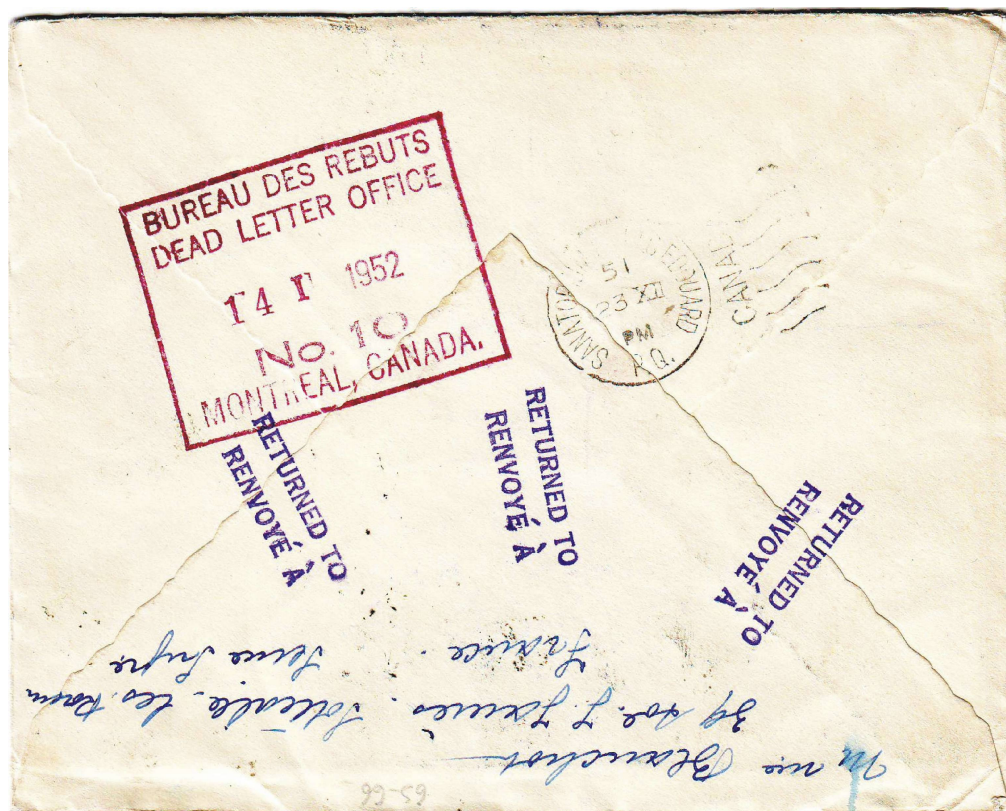 BUREAU DES REBUTS
DEAD LETTER OFFICE
14 I 1952
No. 10
MONTREAL, CANADA.
51
23 XII
PM
P.Q.
RETURNED TO
RENVOYÉ À
RETURNED TO
RENVOYÉ À
RETURNED TO
RENVOYÉ À
Blanchot
39 J. Jaurès. Sotteville. Les.
France. Seine Infre
65-66